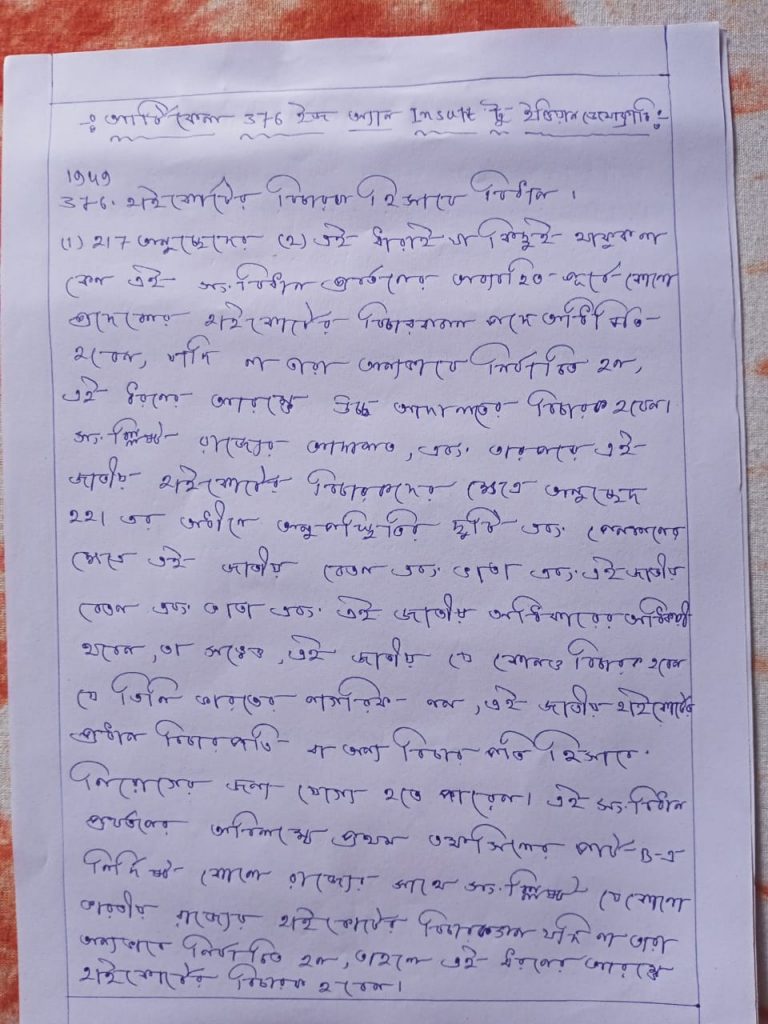 ঃ আর্টিকেল 376 ইজ অ্যান Insult টু ইন্ডিয়ান ডেমোক্রাসি ঃ
1949
376. হাইকোর্টের বিচারক হিসাবে বিধান ।
(1) 217 অনুচ্ছেদের (2) এই ধারাই যা কিছুই থাকুক না
কেন এই সংবিধান প্রবর্তনের অব্যবহিত পূর্বে কোনো
প্রদেশের হাইকোর্টের বিচারকগণ পদে অধিষ্ঠিত
হবেন, যদি না তারা অন্যভাবে নির্বাচিত হন,
এই ধরনের আরম্ভে উচ্চ আদালতের বিচারক হবেন।
সংশ্লিষ্ট রাজ্যের আদালত, এবং তারপরে এই
জাতীয় হাইকোর্টের বিচারকদের ক্ষেত্রে অনুচ্ছেদ
221 এর অধীনে অনুপস্থিতির ছুটি এবং পেনশনের
ক্ষেত্রে এই জাতীয় বেতন এবং ভাতা এবং এই জাতীয়
বেতন এবং ভাতা এবং এই জাতীয় অধিকারের অধিকারী
হবেন, তা সত্ত্বেও, এই জাতীয় যে কোনও বিচারক হবেন
যে তিনি ভারতের নাগরিক নন, এই জাতীয় হাইকোর্টের
প্রধান বিচারপতি বা অন্য বিচারপতি হিসাবে
নিয়োগের জন্য যোগ্য হতে পারেন। এই সংবিধান
প্রবর্তনের অবিলম্বে প্রথম তফসিলের পার্ট-B-এ
নির্দিষ্ট কোনো রাজ্যের সাথে সংশ্লিষ্ট যেকোনো
ভারতীয় রাজ্যের হাইকোর্টের বিচারকগণ যদি না তারা
অন্যভাবে নির্বাচিত হন, তাহলে এই ধরনের আরম্ভে
হাইকোর্টের বিচারক হবেন।